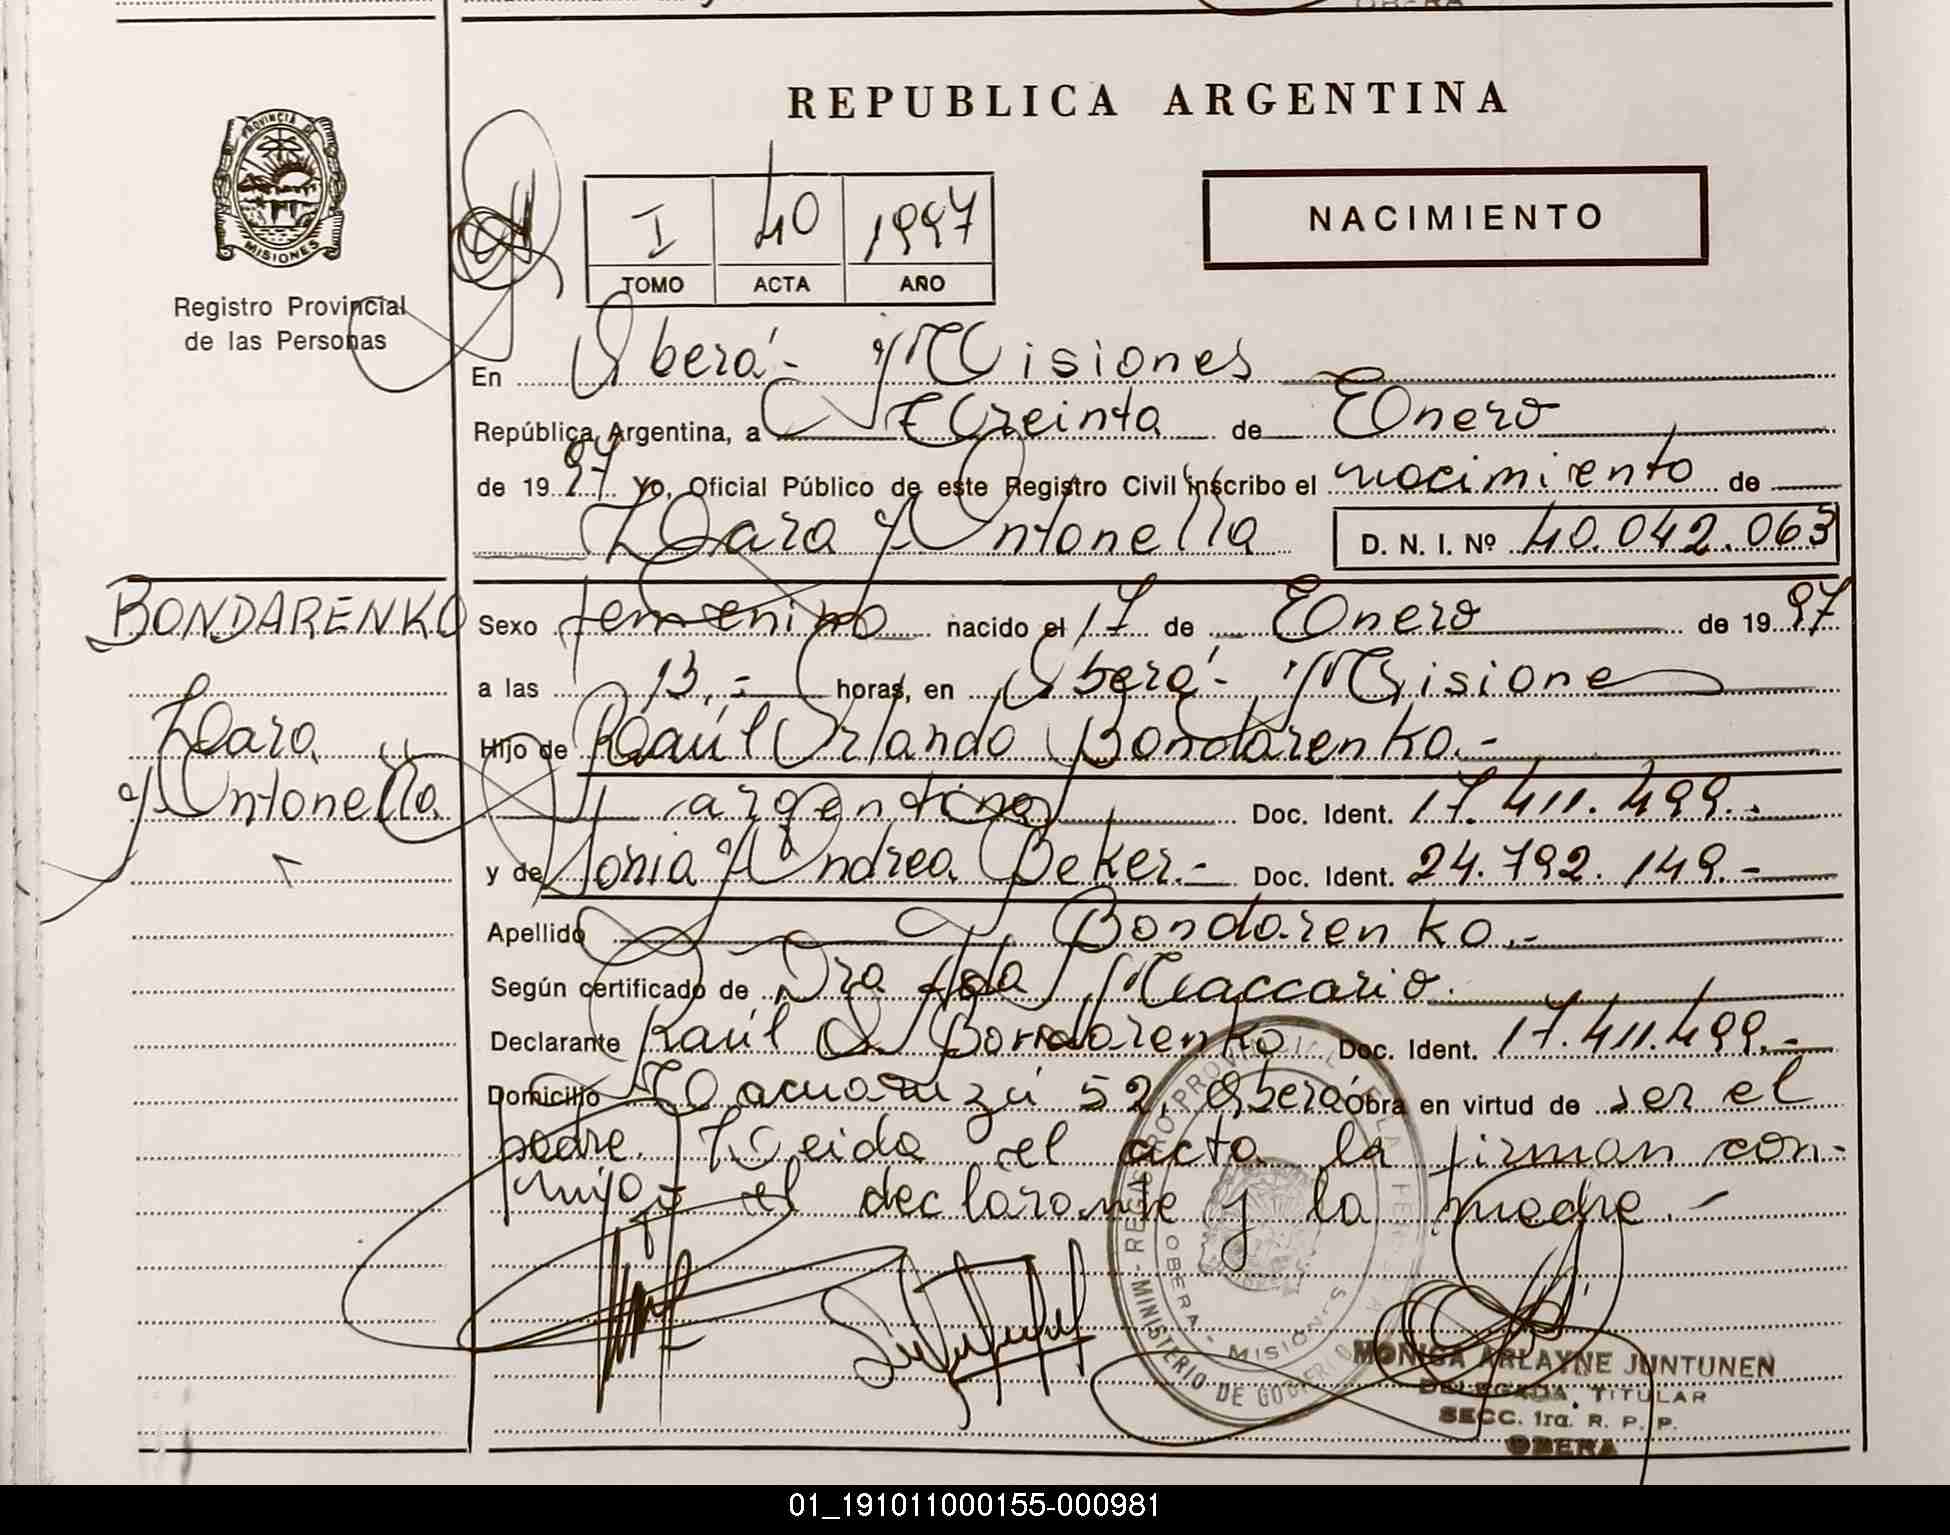 REPUBLICA ARGENTINA
PROVINCIA DE
MISIONES
Registro Provincial
de las Personas
I 40 1997
TOMO ACTA AÑO
NACIMIENTO
En Oberá - Misiones
República Argentina, a Treinta de Enero
de 1997 Yo, Oficial Público de este Registro Civil inscribo el nacimiento de
Dara Antonella D. N. I. Nº 40.042.063
BONDARENKO
Dara
Antonella
Sexo femenino nacido el 17 de Enero de 1997
a las 13,- horas, en Oberá - Misiones
Hijo de Raúl Orlando Bondarenko.-
argentina Doc. Ident. 17.411.499.-
y de Sonia Andrea Beker.- Doc. Ident. 24.792.149.-
Apellido Bondarenko.-
Según certificado de Dra Ada Maccario.
Declarante Raúl O. Bondarenko Doc. Ident. 17.411.499.-
Domicilio 52, Oberá obra en virtud de ser el
padre. Leida el acta la firman con-
migo el declarante y la madre.-
REGISTRO PROVINCIAL DE LAS PER
MINISTERIO DE GOBIERNO
OBERA - MISIONES
MONICA ARLAYNE JUNTUNEN
DELEGADA TITULAR
SECC. 1ra. R. P. P.
OBERA
01_191011000155-000981